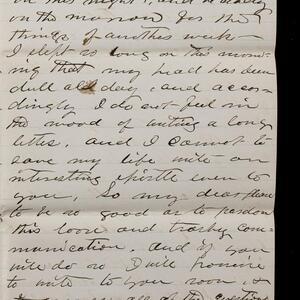 on this night, and so
on the morrow for the
things of another week.
I slept so long on this morn-
ing that my head has been
dull all day, and accor-
dingly I do not feel in
the mood of writing a long
letter, and I cannot to
save my life write an
interesting epistle even to
you, So my dear please
to be so good as to pardon
this loose and trashy com-
munication. and if you
will do so I will promise
to write to you soon, &
all of the questions